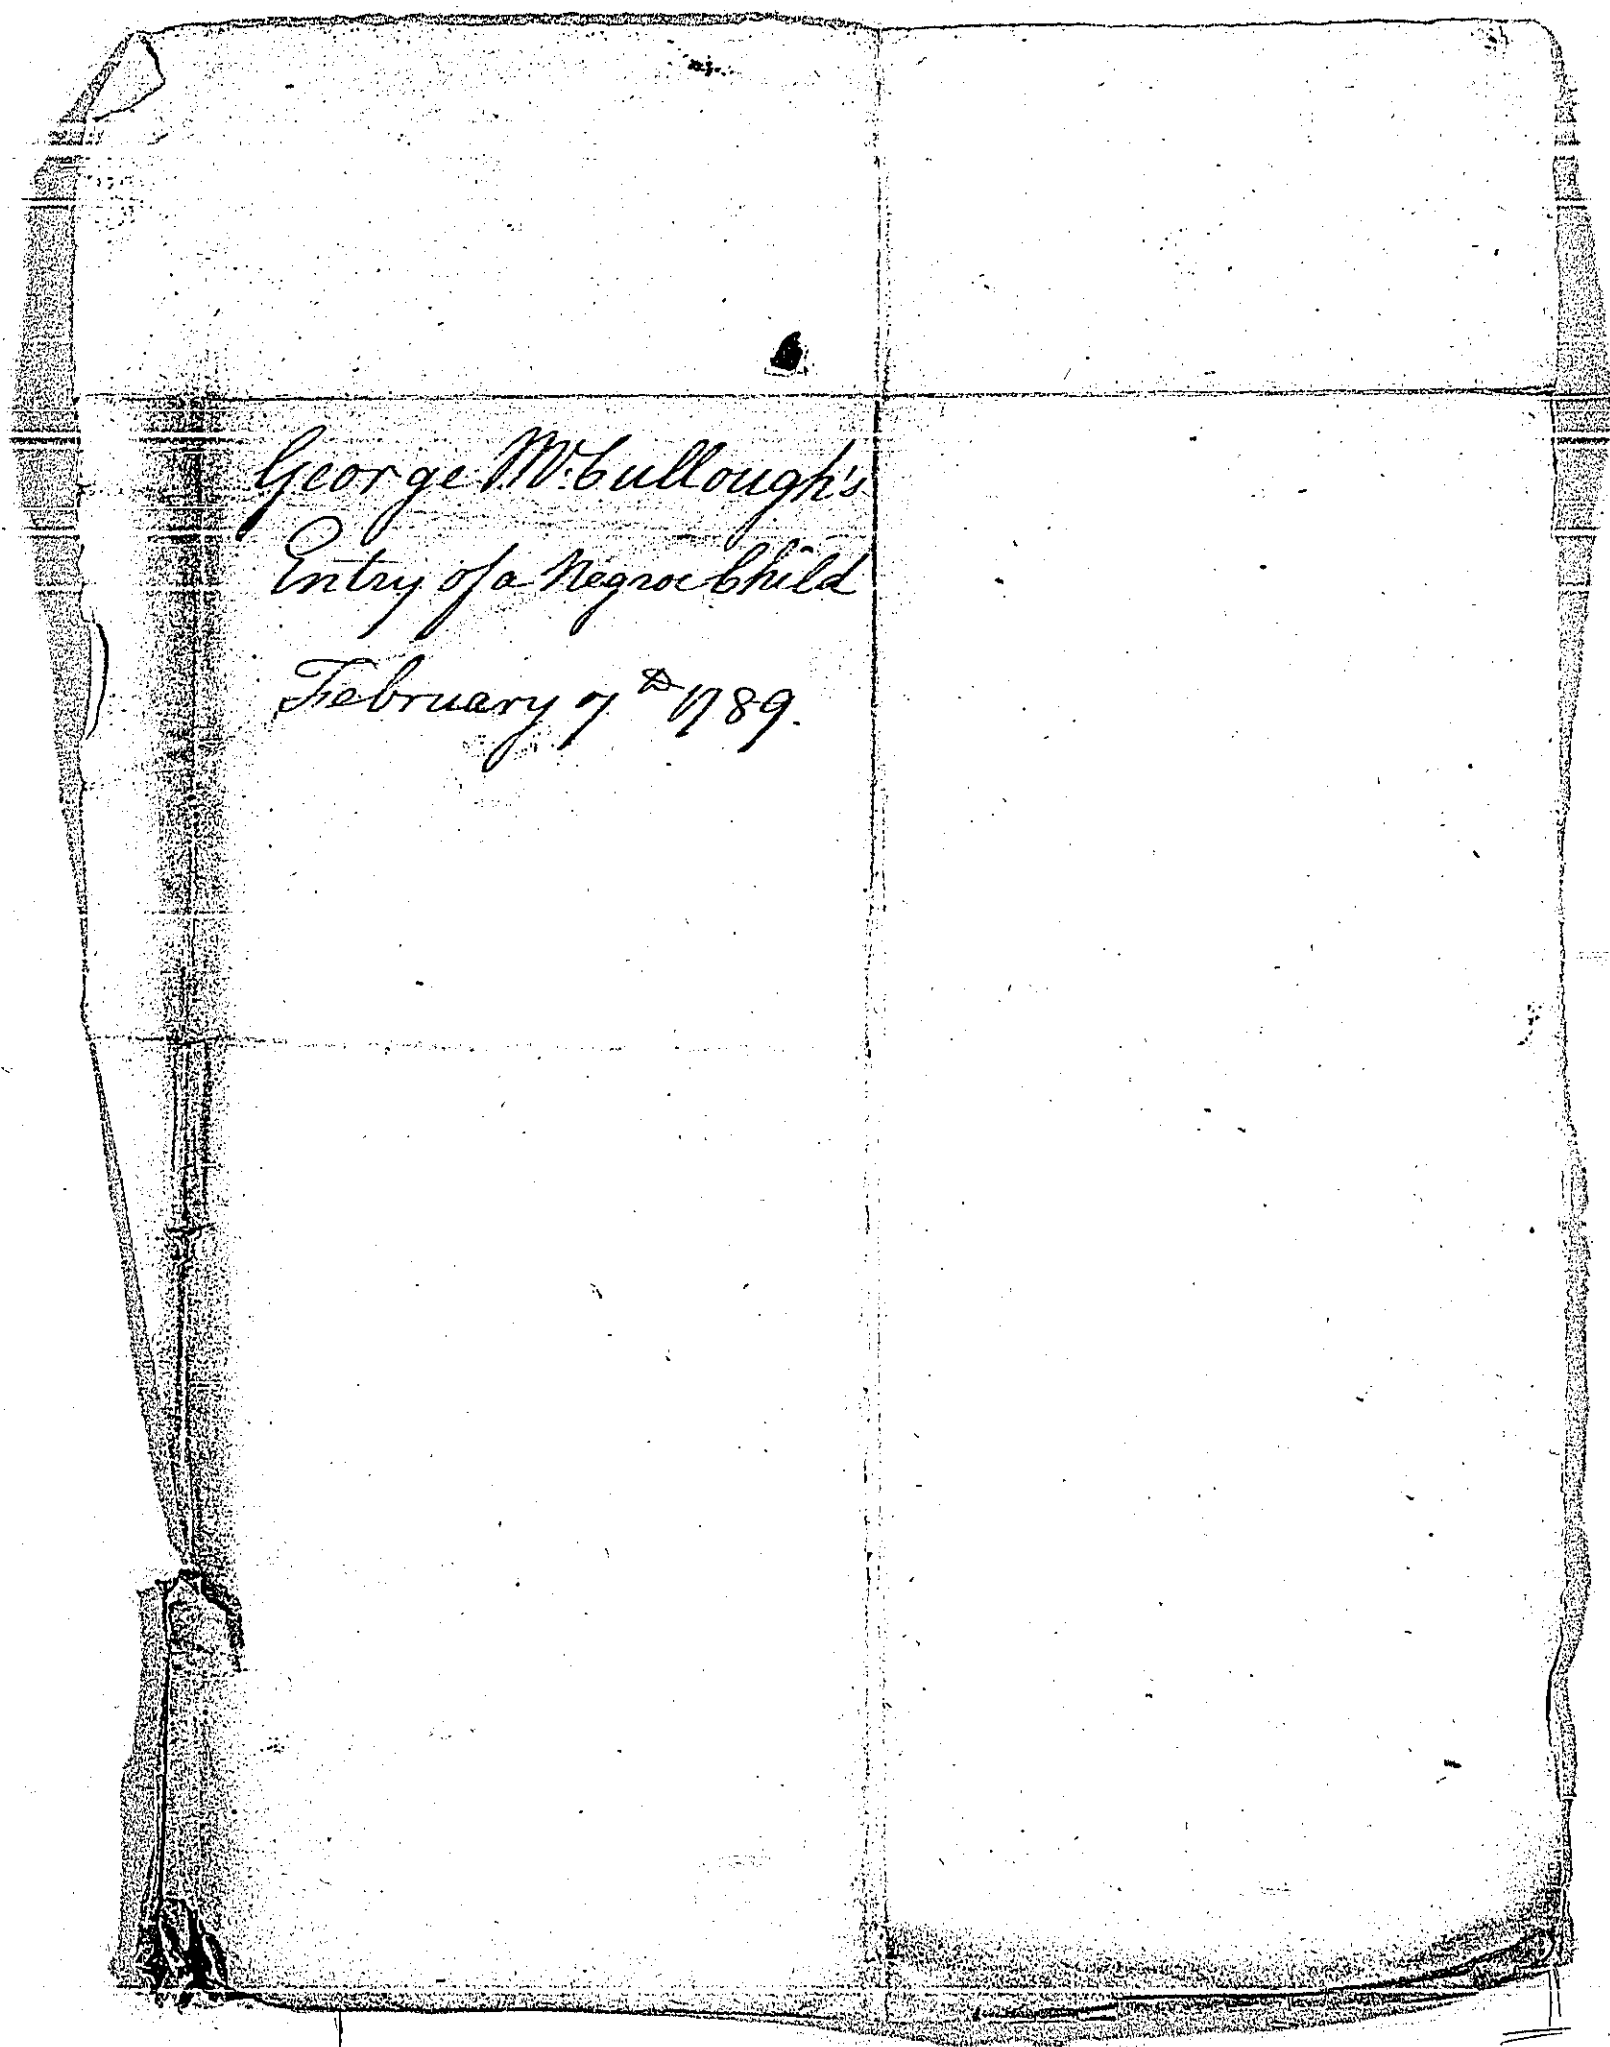 George Mc.Cullough's
Entry of a Negroe Child
February 7th 1789.